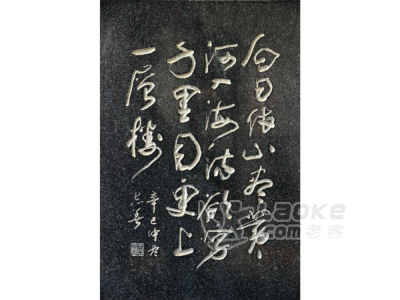 白日依山尽黄
河入海流欲穷
千里目更上
一层楼
辛巳仲冬
志善
Laoke
老客